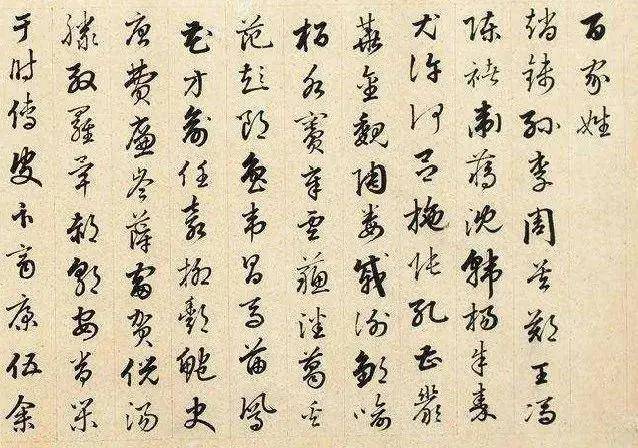 百家姓
趙錢孫李周吳鄭王馮
陳褚衛蔣沈韓楊朱秦
尤許何呂施張孔曹嚴
華金魏陶姜戚謝鄒喻
柏水竇章雲蘇潘葛奚
范彭郎魯韋昌馬苗鳳
花方俞任袁柳酆鮑史
唐費廉岑薛雷賀倪湯
滕殷羅畢郝鄔安常樂
于時傅皮卞齊康伍余